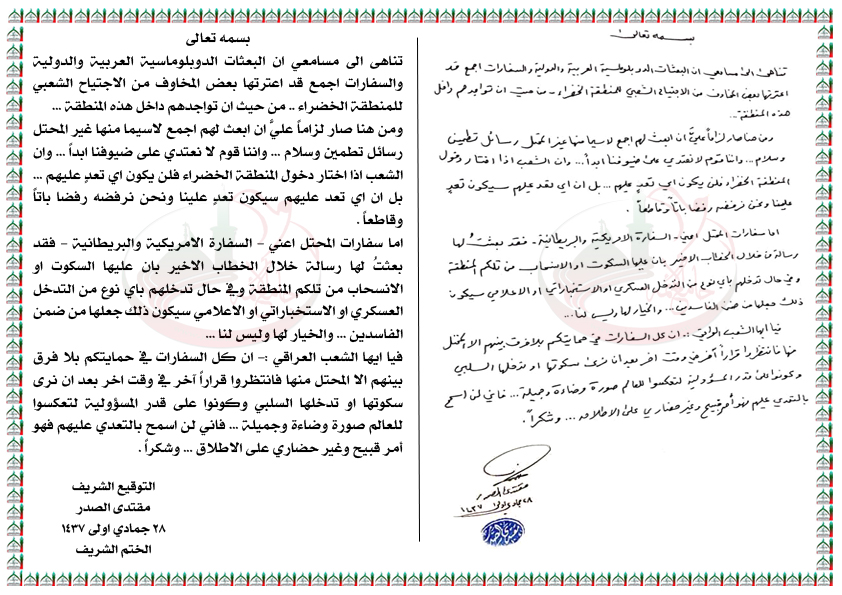 بسمه تعالى
تناهى الى مسامعي ان البعثات الدوبلوماسية العربية والدولية والسفارات اجمع قد
اعترتها بعض المخاوف من الاجتياح الشعبي للمنطقة الخضراء .. من حيث ان تواجدهم داخل
هذه المنطقة ...
ومن هنا صار لزاماً عليَّ ان ابعث لهم اجمع لاسيما منها غير المحتل رسائل تطمين
وسلام ... واننا قوم لا نعتدي على ضيوفنا ابداً ... وان الشعب اذا اختار دخول
المنطقة الخضراء فلن يكون اي تعدٍ عليهم ... بل ان اي تعد عليهم سيكون تعدٍ
علينا ونحن نرفضه رفضا باتاً وقاطعاً .
اما سفارات المحتل اعني - السفارة الامريكية والبريطانية - فقد بعثتُ لها
رسالة من خلال الخطاب الاخير بان عليها السكوت او الانسحاب من تلكم المنطقة
وفي حال تدخلهم باي نوع من التدخل العسكري او الاستخباراتي او الاعلامي سيكون
ذلك جعلها من ضمن الفاسدين ... والخيار لها وليس لنا ...
فيا ايها الشعب العراقي :- ان كل السفارات في حمايتكم بلا فرق بينهم الا المحتل
منها فانتظروا قراراً آخر في وقت اخر بعد ان نرى سكوتها او تدخلها السلبي
وكونوا على قدر المسؤولية لتعكسوا للعالم صورة وضاءة وجميلة ... فاني لن اسمح
بالتعدي عليهم فهو أمر قبيح وغير حضاري على الاطلاق ... وشكراً .
مقتدى الصدر
٢٨ جمادي اولى ١٤٣٧
بسمه تعالى
تناهى الى مسامعي ان البعثات الدوبلوماسية العربية والدولية
والسفارات اجمع قد اعترتها بعض المخاوف من الاجتياح الشعبي
للمنطقة الخضراء .. من حيث ان تواجدهم داخل هذه المنطقة ...
ومن هنا صار لزاماً عليَّ ان ابعث لهم اجمع لاسيما منها غير المحتل
رسائل تطمين وسلام ... واننا قوم لا نعتدي على ضيوفنا ابداً ... وان
الشعب اذا اختار دخول المنطقة الخضراء فلن يكون اي تعدٍ عليهم ...
بل ان اي تعد عليهم سيكون تعدٍ علينا ونحن نرفضه رفضا باتاً
وقاطعاً .
اما سفارات المحتل اعني - السفارة الامريكية والبريطانية - فقد
بعثتُ لها رسالة خلال الخطاب الاخير بان عليها السكوت او
الانسحاب من تلكم المنطقة وفي حال تدخلهم باي نوع من التدخل
العسكري او الاستخباراتي او الاعلامي سيكون ذلك جعلها من ضمن
الفاسدين ... والخيار لها وليس لنا ...
فيا ايها الشعب العراقي :- ان كل السفارات في حمايتكم بلا فرق
بينهم الا المحتل منها فانتظروا قراراً آخر في وقت اخر بعد ان نرى
سكوتها او تدخلها السلبي وكونوا على قدر المسؤولية لتعكسوا
للعالم صورة وضاءة وجميلة ... فاني لن اسمح بالتعدي عليهم فهو
أمر قبيح وغير حضاري على الاطلاق ... وشكراً .
التوقيع الشريف
مقتدى الصدر
٢٨ جمادي اولى ١٤٣٧
الختم الشريف